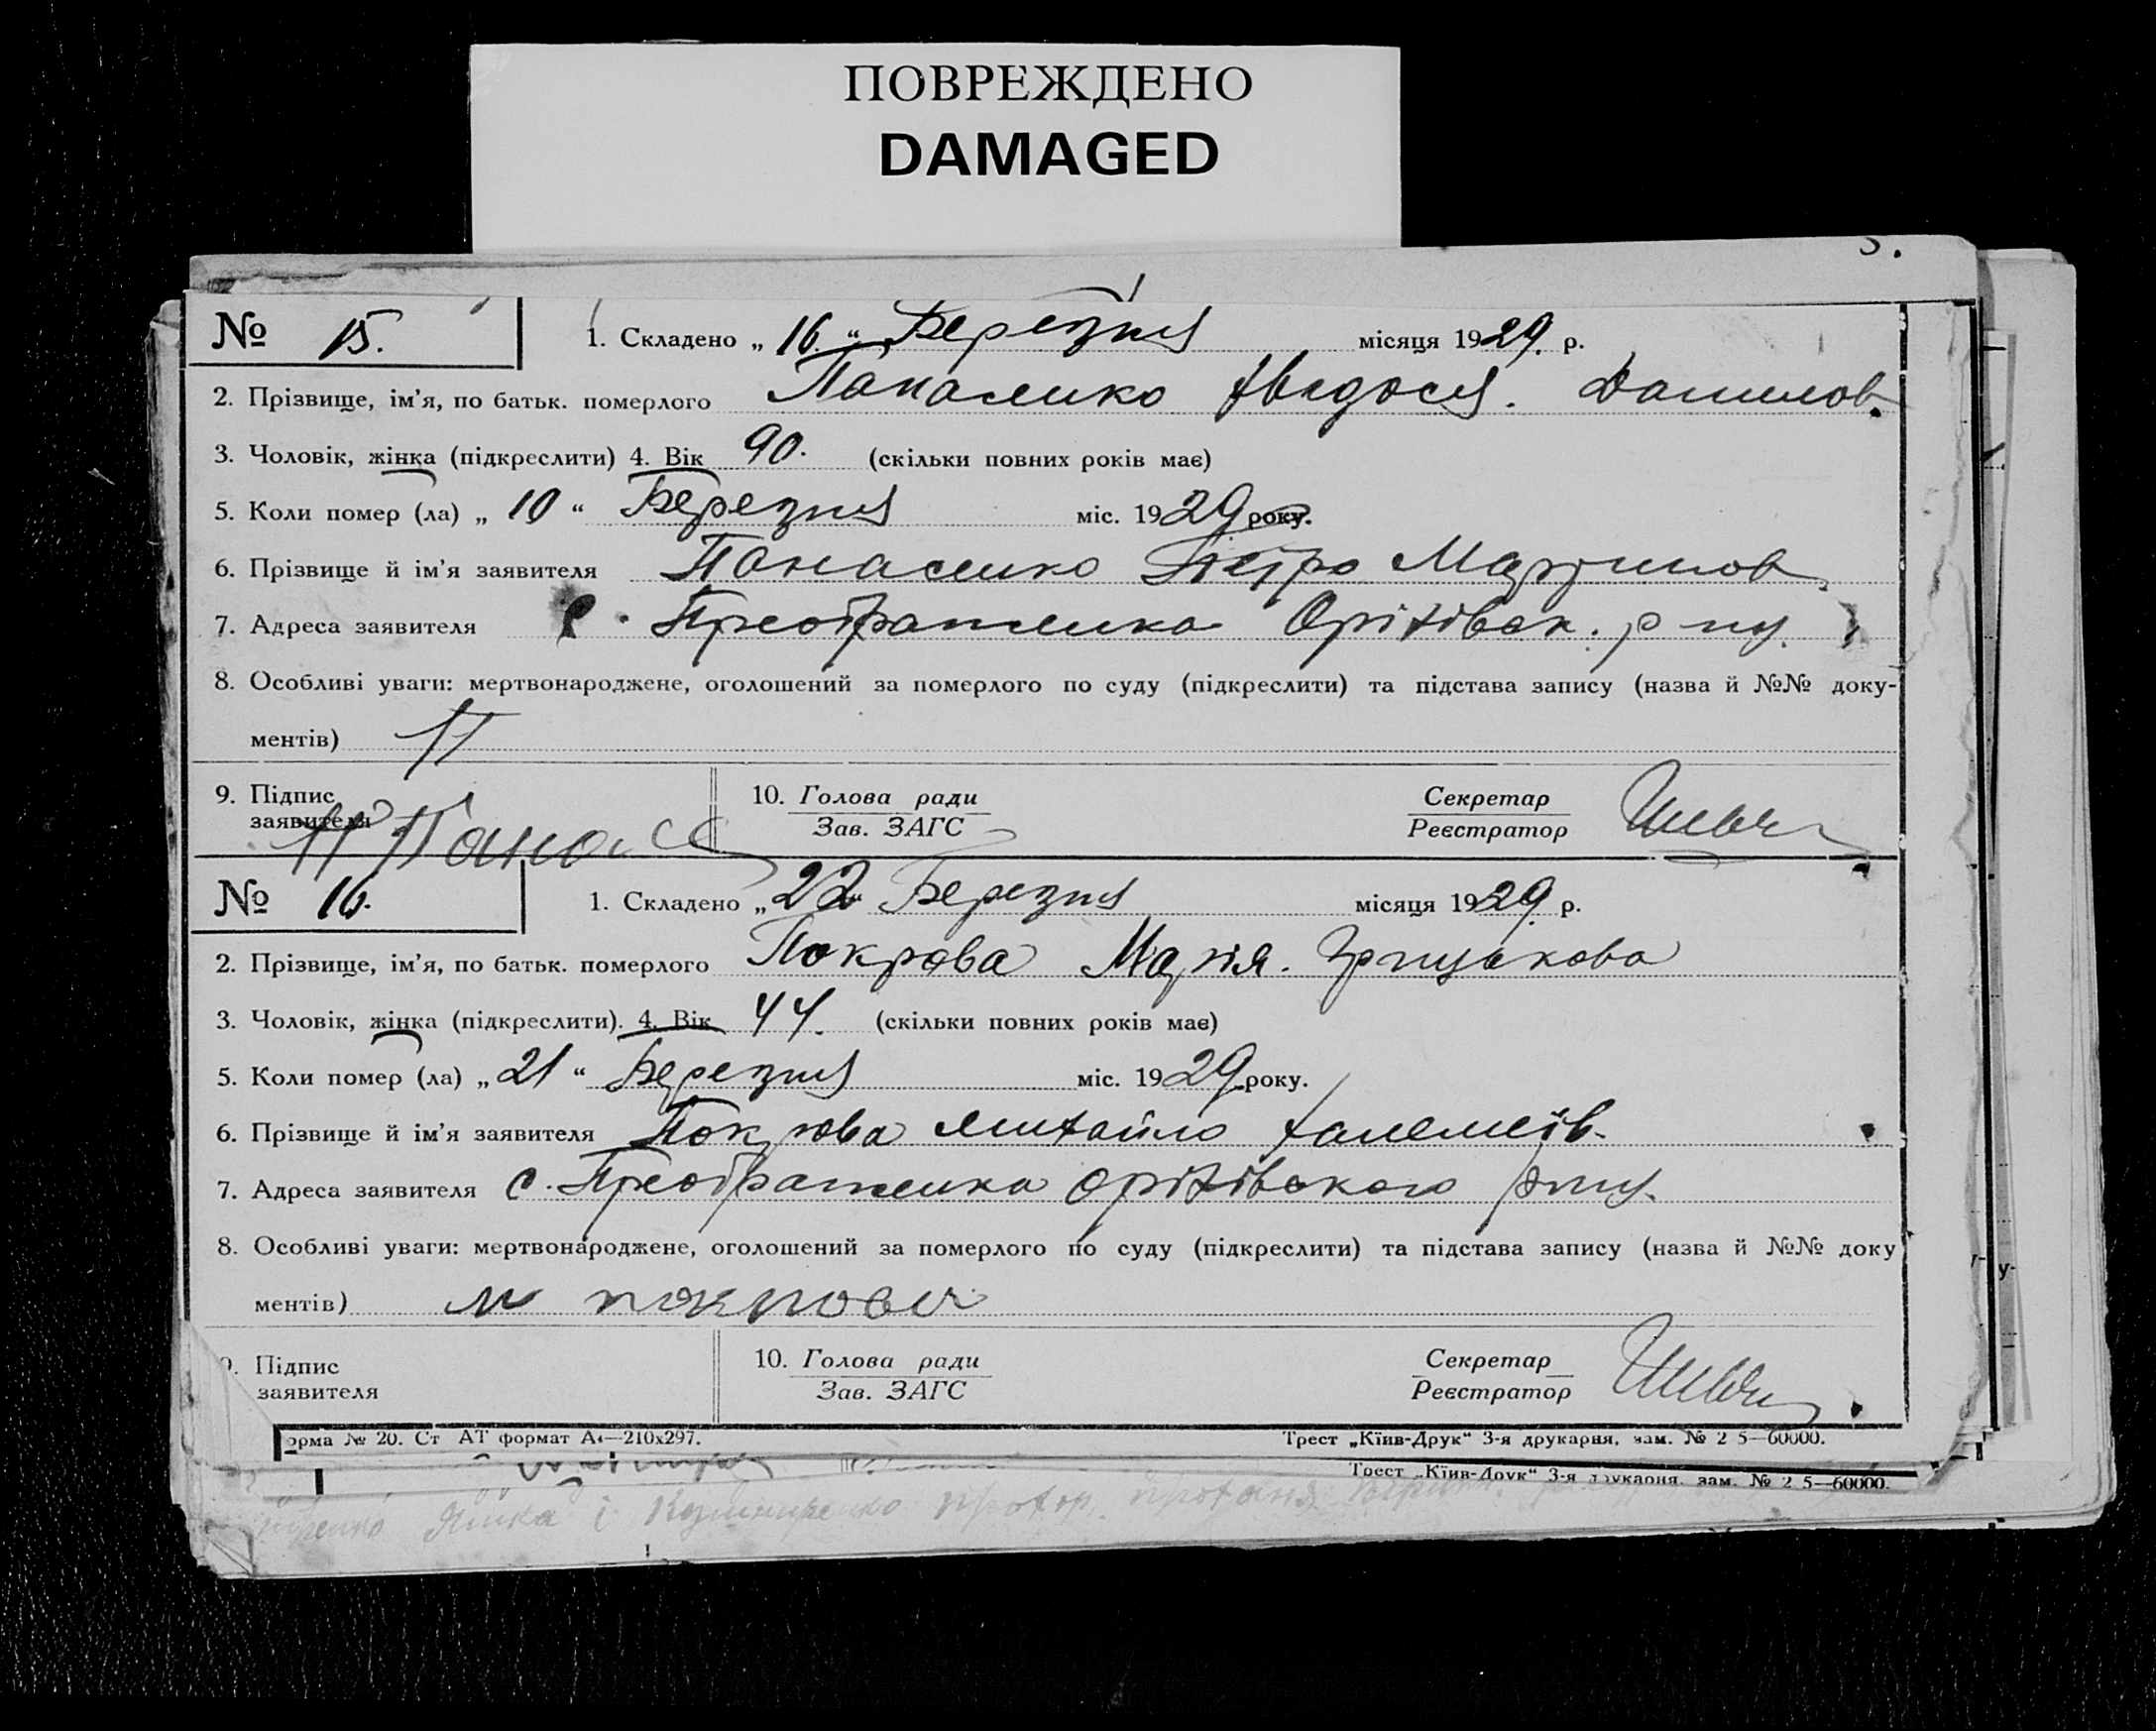 ПОВРЕЖДЕНО
DAMAGED
№ 15. 1. Складено „ 16 “ Березня місяця 1929. р.
2. Прізвище, ім’я, по батьк. померлого Панасенко Данилов.
3. Чоловік, жінка (підкреслити) 4. Вік 90. (скільки повних років має)
5. Коли помер (ла) „ 10 “ Березня міс. 1929 року.
6. Прізвище й ім’я заявителя Панасенко Петро Мартинов.
7. Адреса заявителя с. Преображенка Оріхівськ. р-ну.
8. Особливі уваги: мертвонароджене, оголошений за померлого по суду (підкреслити) та підстава запису (назва й №№ доку-
ментів) П
9. Підпис заявителя П Панас 10. Голова ради Зав. ЗАГС Секретар Реєстратор
№ 16. 1. Складено „ 22 “ Березня місяця 1929. р.
2. Прізвище, ім’я, по батьк. померлого Покрова Марія. Грицькова
3. Чоловік, жінка (підкреслити). 4. Вік 44. (скільки повних років має)
5. Коли помер (ла) „ 21 “ Березня міс. 1929 року.
6. Прізвище й ім’я заявителя Покрова Михайло
7. Адреса заявителя с. Преображенка Оріхівского р-ну.
8. Особливі уваги: мертвонароджене, оголошений за померлого по суду (підкреслити) та підстава запису (назва й №№ доку
ментів) М покрова
9. Підпис заявителя 10. Голова ради Зав. ЗАГС Секретар Реєстратор
орма № 20. Ст АТ формат А4—210х297. Трест „Київ-Друк“ 3-я друкарня, зам. № 2 5—60000.
Трест „Київ-Друк“ 3-я друкарня, зам. № 2 5—60000.